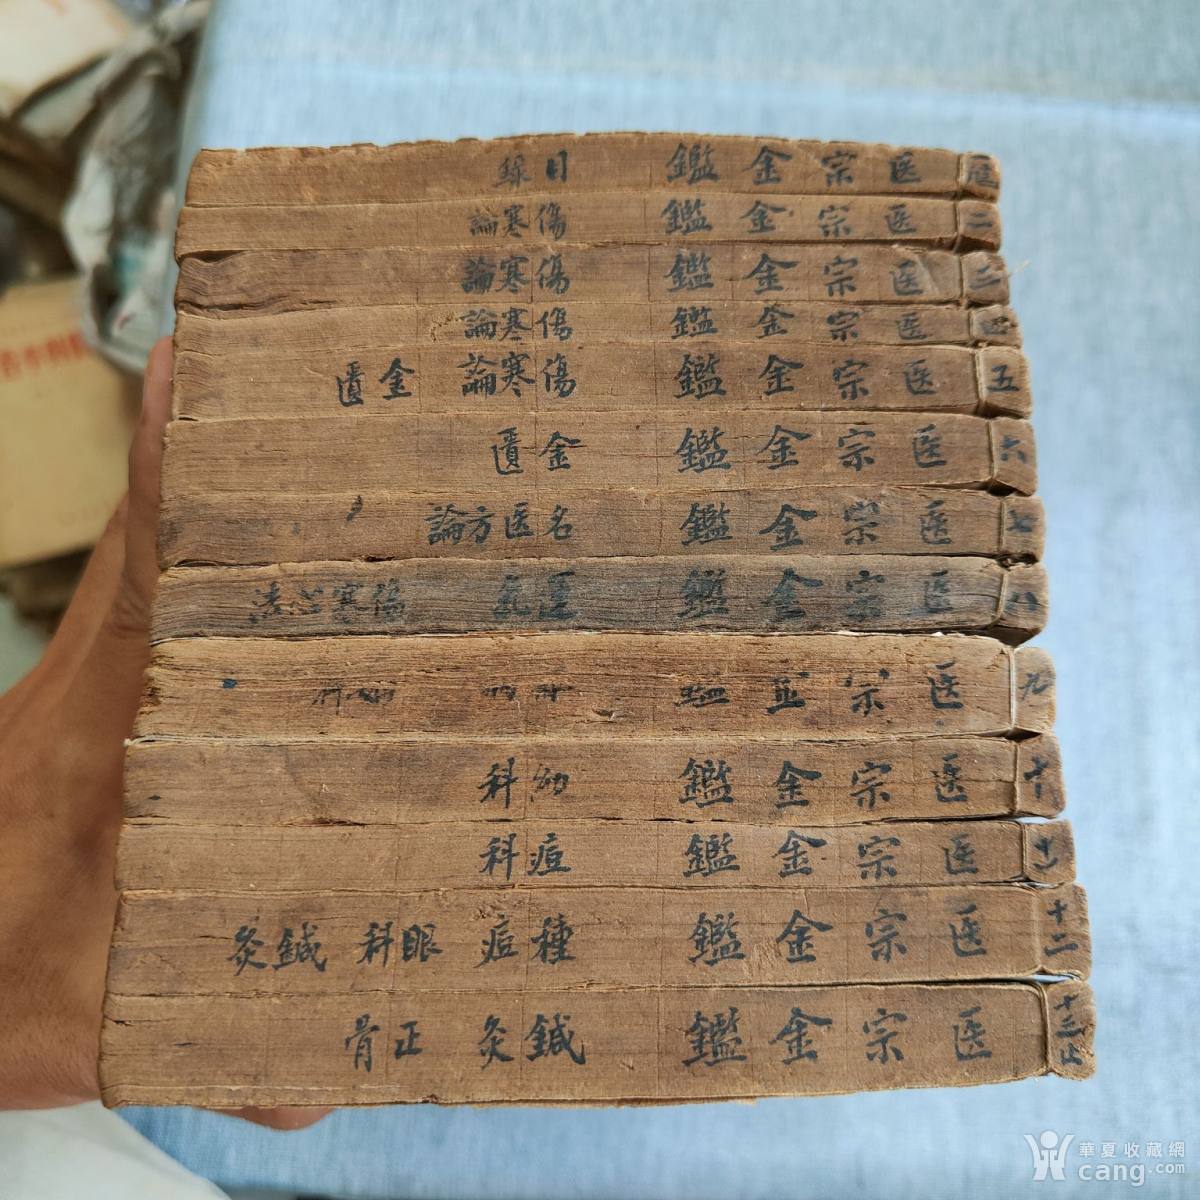 医宗金鑑 目録
二 医宗金鑑 傷寒論
三 医宗金鑑 傷寒論
四 医宗金鑑 傷寒論
五 医宗金鑑 傷寒論 金匱
六 医宗金鑑 金匱
七 医宗金鑑 名医方論
八 医宗金鑑 傷寒心法
九 医宗金鑑
十 医宗金鑑 幼科
十一 医宗金鑑 痘科
十二 医宗金鑑 種痘 眼科 鍼灸
十三止 医宗金鑑 鍼灸 正骨
華夏收藏網
cang.com